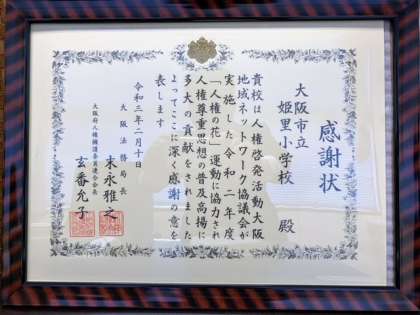 感謝状
大阪市立
姫里小学校 殿
貴校は人権啓発活動大阪
地域ネットワーク協議会が
実施した令和二年度
「人権の花」運動に協力され
人権尊重思想の普及高揚に
多大の貢献をされました
よってここに深く感謝の意を
表します
令和三年二月十日
大阪法務局長
末永雅之
大阪府人権擁護委員連合会長
玄番允子